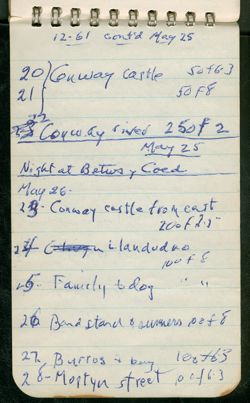 12-61 cont'd May 25
20) Conway castle 50f6.3
21 50f8
22 Conway river 250f2
May 25
Night at Betws y Coed
May 26-
23- Conway castle from east
200f2.8
24 Llandudno
100f8
25 Family & dog " "
26 Band stand & 100f8
27. Burros & boy 100f6.3
28-Mostyn street 6.3